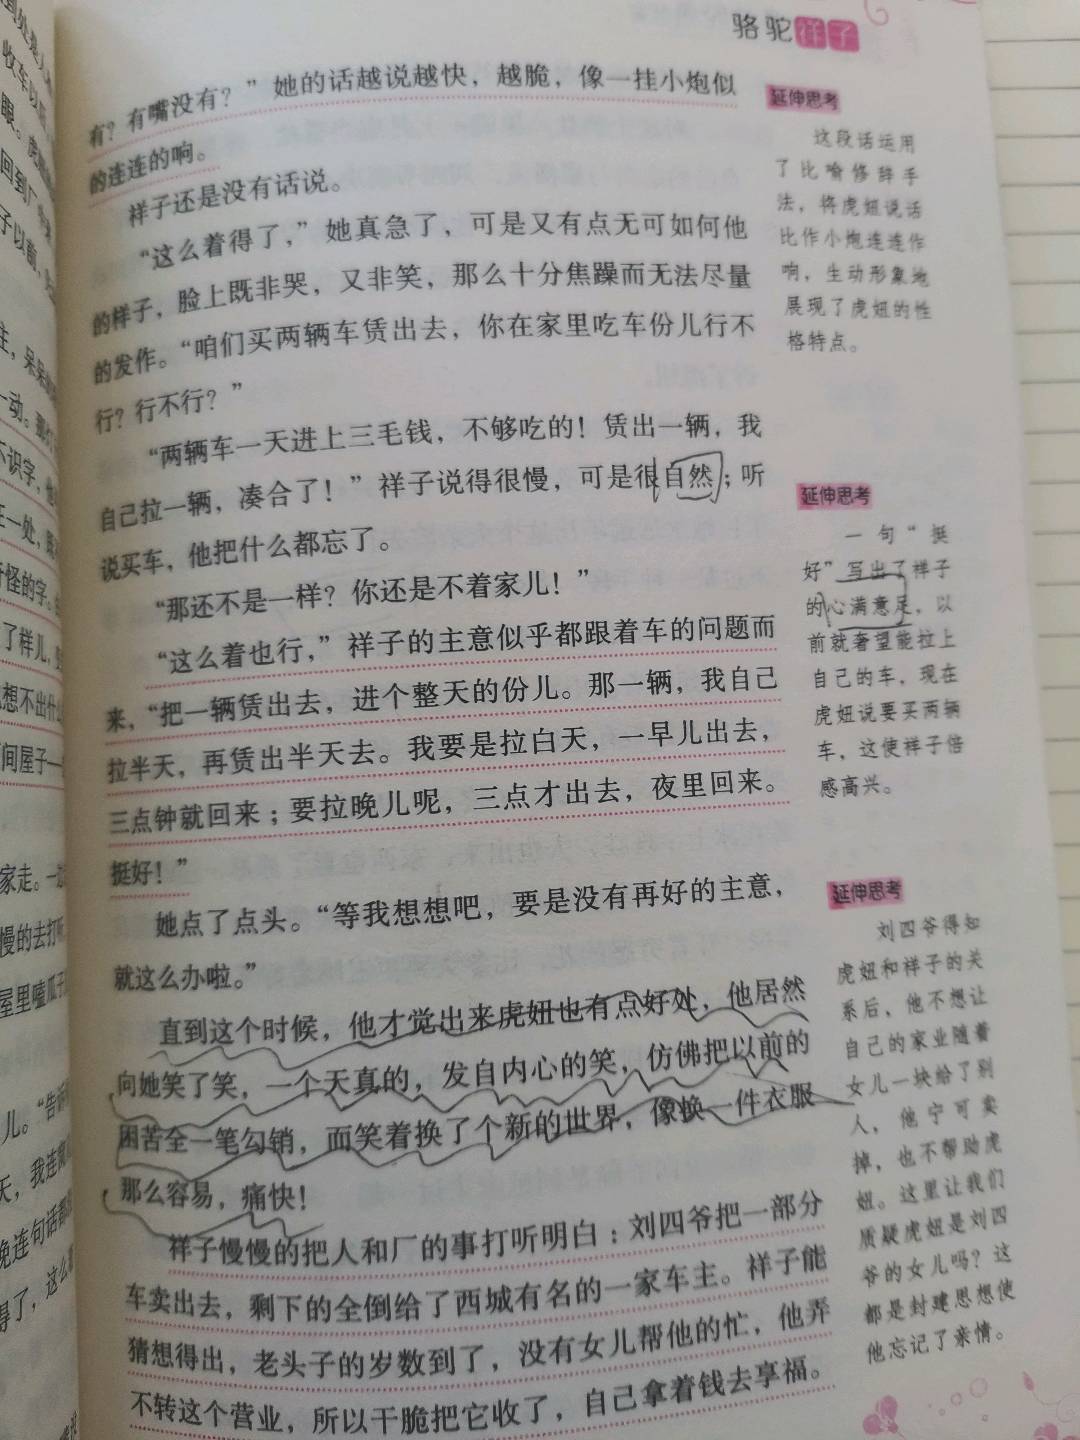 骆驼祥子
有？有嘴没有？”她的话越说越快，越脆，像一挂小炮似
的连连的响。
祥子还是没有话说。
“这么着得了，”她真急了，可是又有点无可如何他
的样子，脸上既非哭，又非笑，那么十分焦躁而无法尽量
的发作。“咱们买两辆车赁出去，你在家里吃车份儿行不
行？行不行？”
“两辆车一天进上三毛钱，不够吃的！赁出一辆，我
自己拉一辆，凑合了！”祥子说得很慢，可是很自然；听
说买车，他把什么都忘了。
“那还不是一样？你还是不着家儿！”
“这么着也行，”祥子的主意似乎都跟着车的问题而
来，“把一辆赁出去，进个整天的份儿。那一辆，我自己
拉半天，再赁出半天去。我要是拉白天，一早儿出去，
三点钟就回来；要拉晚儿呢，三点才出去，夜里回来。
挺好！”
她点了点头。“等我想想吧，要是没有再好的主意，
就这么办啦。”
直到这个时候，他才觉出来虎妞也有点好处，他居然
向她笑了笑，一个天真的，发自内心的笑，仿佛把以前的
困苦全一笔勾销，而笑着换了个新的世界，像换一件衣服
那么容易，痛快！
祥子慢慢的把人和厂的事打听明白：刘四爷把一部分
车卖出去，剩下的全倒给了西城有名的一家车主。祥子能
猜想得出，老头子的岁数到了，没有女儿帮他的忙，他弄
不转这个营业，所以干脆把它收了，自己拿着钱去享福。
延伸思考
这段话运用
了比喻修辞手
法，将虎妞说话
比作小炮连连作
响，生动形象地
展现了虎妞的性
格特点。
延伸思考
一句“挺
好”写出了祥子
的心满意足，以
前就奢望能拉上
自己的车，现在
虎妞说要买两辆
车，这使祥子倍
感高兴。
延伸思考
刘四爷得知
虎妞和祥子的关
系后，他不想让
自己的家业随着
女儿一块给了别
人，他宁可卖
掉，也不帮助虎
妞。这里让我们
质疑虎妞是刘四
爷的女儿吗？这
都是封建思想使
他忘记了亲情。